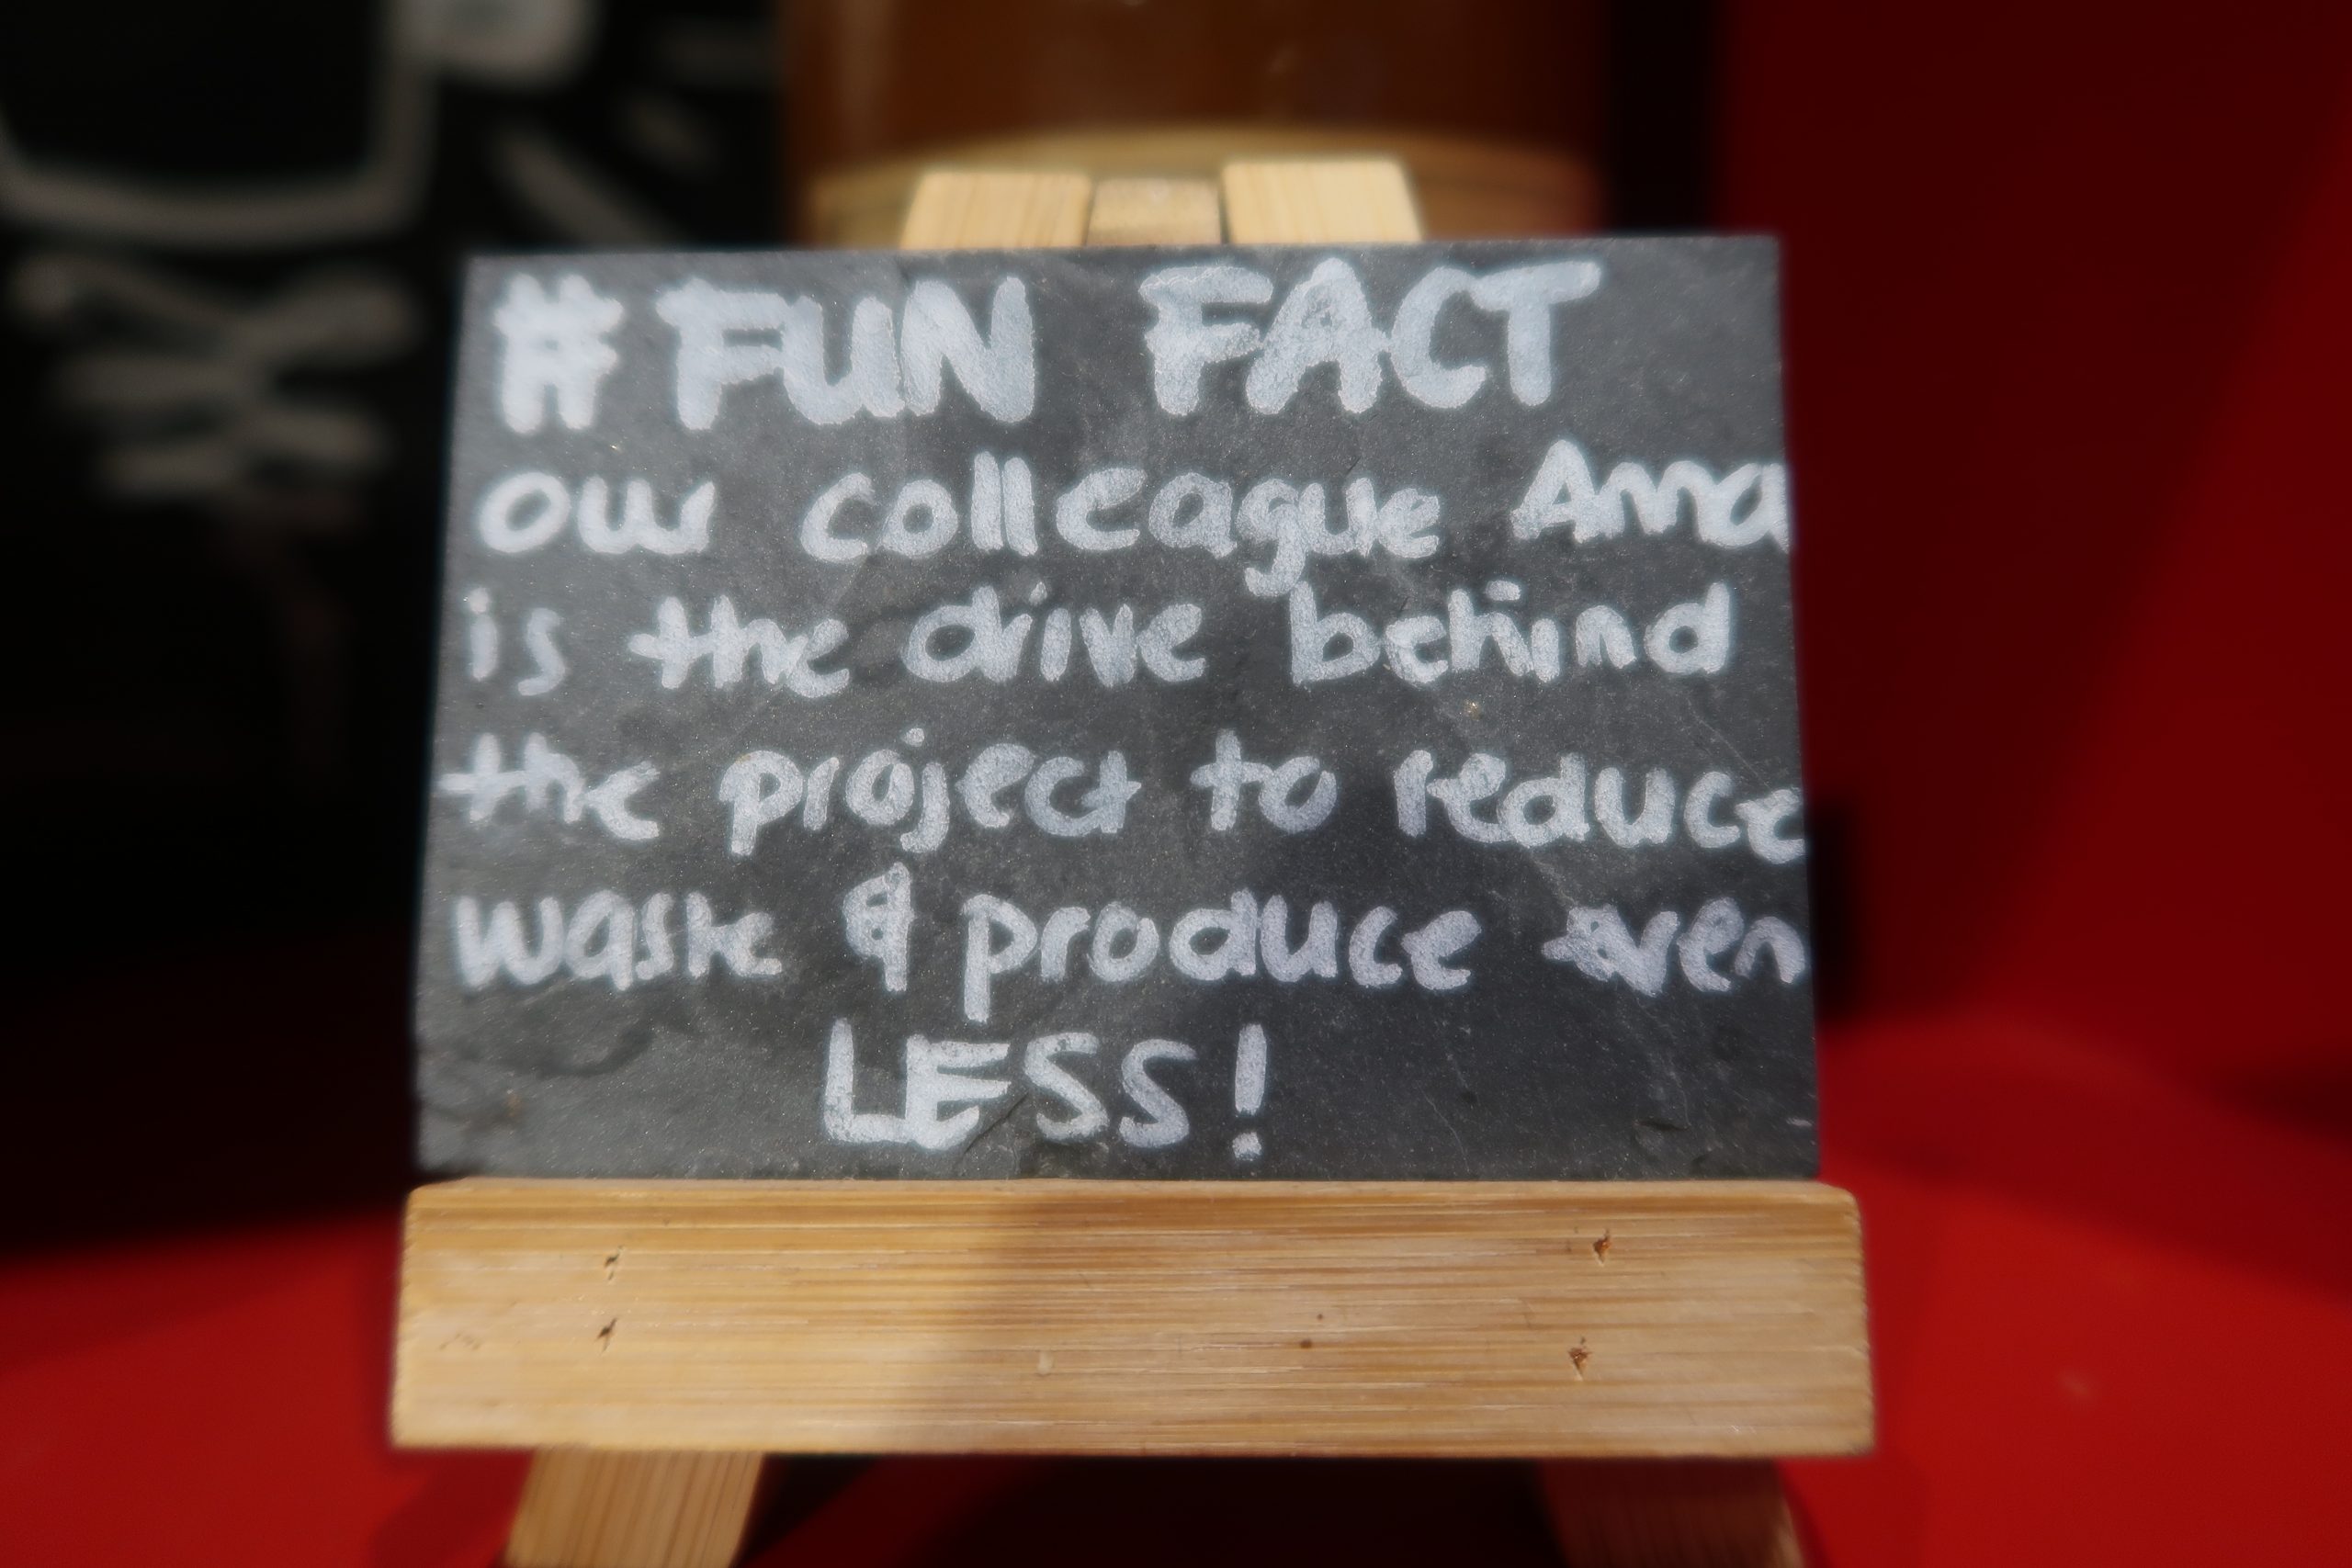 # FUN FACT
our colleague Anna
is the drive behind
the project to reduce
waste & produce even
LESS!